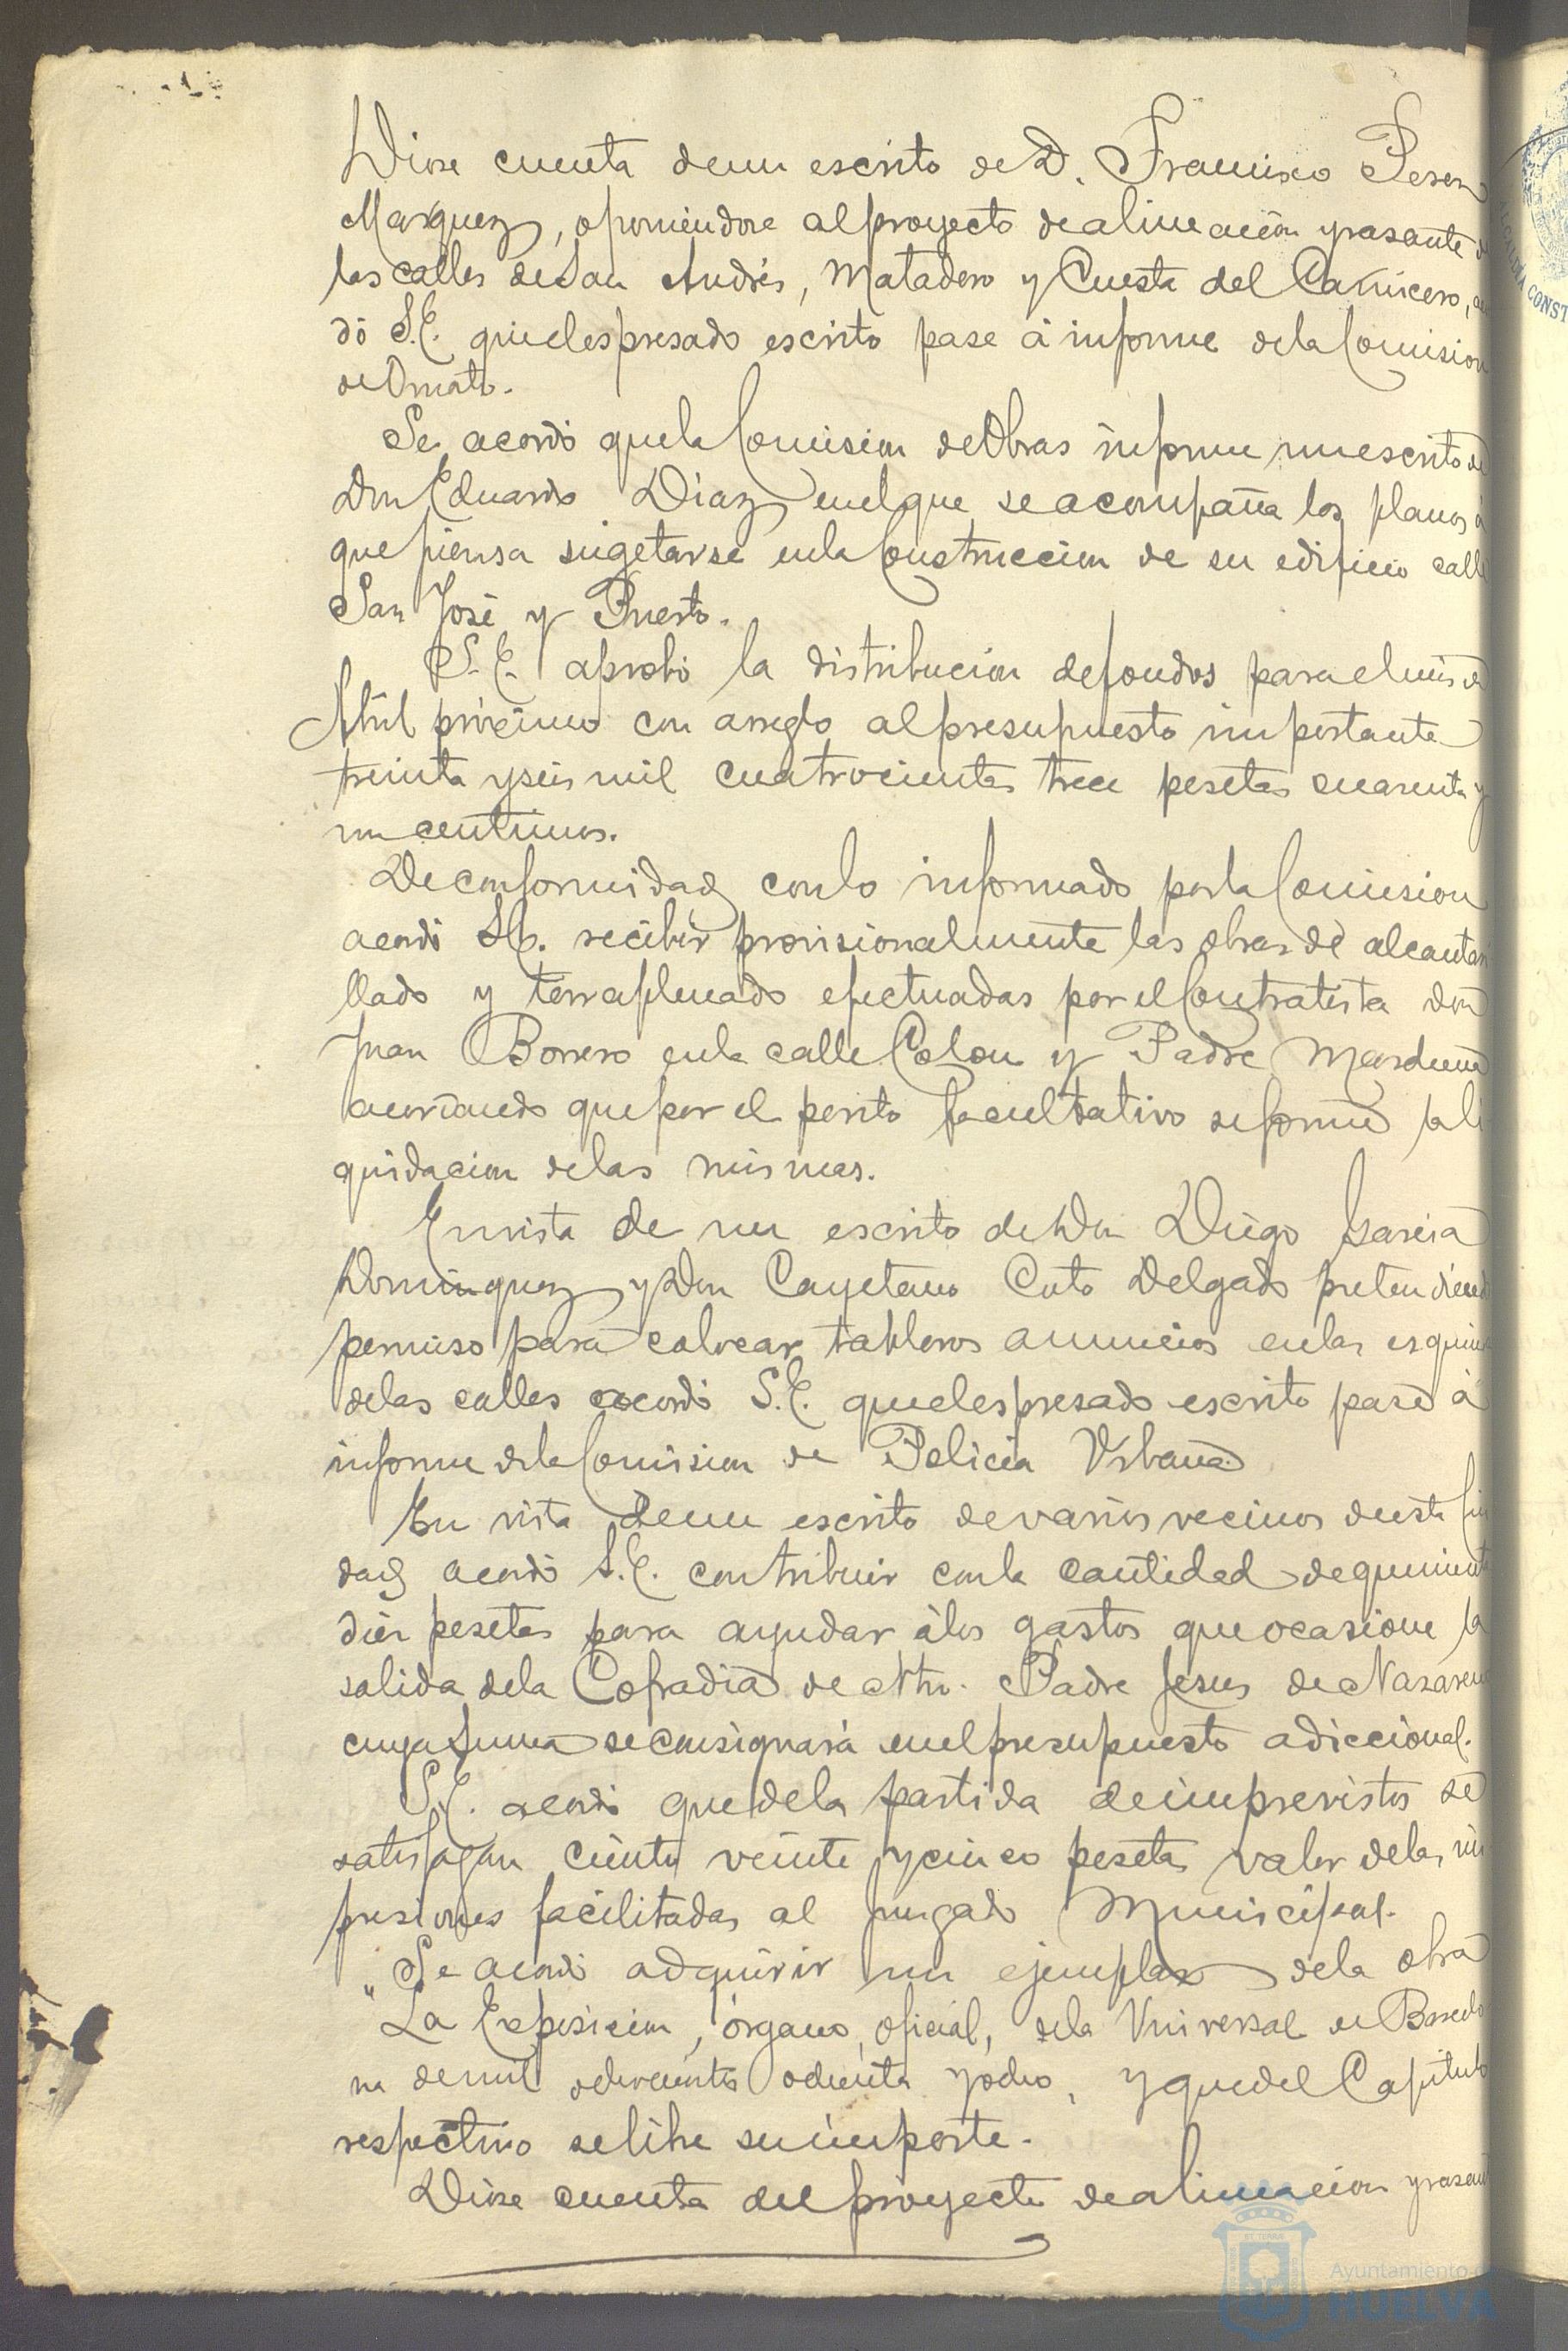 Diose cuenta de un escrito de D. Francisco Perez
Marquez, oponiendose al proyecto de alineación y rasante
las calles de San Andrés, Matadero y Cuesta del Carnicero,
dó S.E. que el espresado escrito pase á informe de la Comision
de Ornato.
Se acordó que la Comision de Obras informe un escrito de
Don Eduardo Diaz en el que se acompaña los planos á
que piensa sugetarse en la Construccion de su edificio calle
San José y Puerto.
S.E. aprobó la distribucion de fondos para el mes de
Abril próximo con arreglo al presupuesto importante
treinta y seis mil cuatrocientas trece pesetas cuarenta y
un centimos.
De conformidad con lo informado por la Comision
acordó S.E. recibir provisionalmente las obras de alcantari
llado y terraplenado efectuadas por el Contratista don
Juan Borrero en la calle Colon y Padre Marchena
acordando que por el perito facultativo se forme la li
quidacion de las mismas.
En vista de un escrito de Don Diego Garcia
Dominguez y Don Cayetano Coto Delgado pretendiendo
permiso para colocar tableros anuncios en las esquinas
de las calles acordó S.E. que el espresado escrito pase á
informe de la Comision de Policia Urbana
En vista de un escrito de varios vecinos de esta Ciu
dad acordó S.E. contribuir con la cantidad de quinientas
diez pesetas para ayudar á los gastos que ocasione la
salida de la Cofradia de Ntro. Padre Jesus de Nazareno
cuya suma se consignará en el presupuesto adiccional.
S.E. acordó que de la partida de imprevistos se
satisfagan ciento veinte y cinco pesetas valor de las im
presiones facilitadas al Juzgado Municipal.
Se acordó adquirir un ejemplar de la obra
"La Exposicion, órgano, oficial, de la Universal de Barcelo
na de mil ochocientos ochenta y ocho, y que del Capitulo
respectivo se libre su importe.
Diose cuenta del proyecto de alineacion y rasante
Ayuntamiento de
HUELVA
ALCALDIA CONST